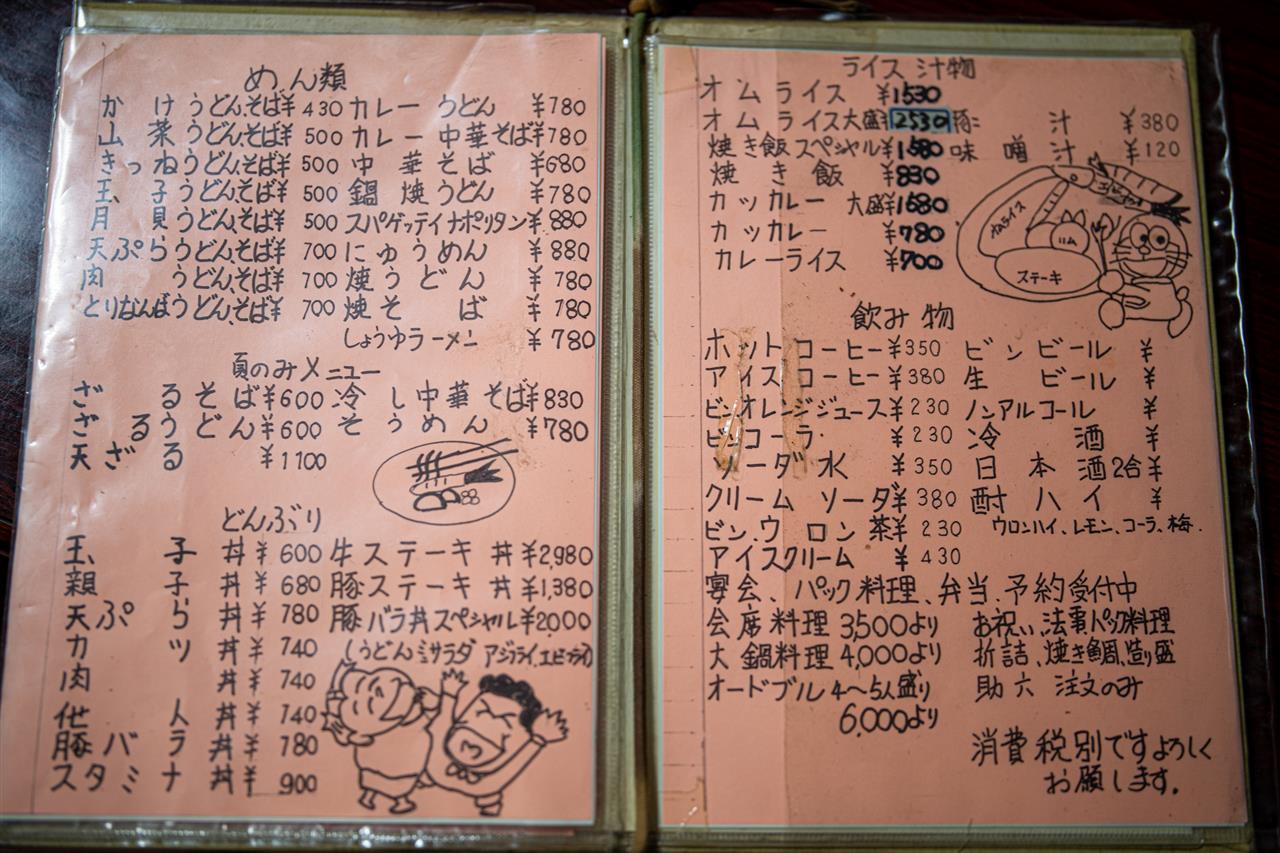 めん類
かけうどん、そば ¥430 カレーうどん ¥780
山菜うどん、そば ¥500 カレー中華そば ¥780
きつねうどん、そば ¥500 中華そば ¥680
玉子うどん、そば ¥500 鍋焼うどん ¥780
月見うどん、そば ¥500 スパゲッティナポリタン ¥880
天ぷらうどん、そば ¥700 にゅうめん ¥880
肉うどん、そば ¥700 焼うどん ¥780
とりなんばうどん、そば ¥700 焼そば ¥780
しょうゆラーメン ¥780
夏のみメニュー
ざるそば ¥600 冷し中華そば ¥830
ざるうどん ¥600 そうめん ¥780
天ざる ¥1100
どんぶり
玉子丼 ¥600 牛ステーキ丼 ¥2,980
親子丼 ¥680 豚ステーキ丼 ¥1,380
天ぷら丼 ¥780 豚バラ丼スペシャル ¥2000
カツ丼 ¥740 (うどんミニサラダ アジフライ、エビフライ)
肉丼 ¥740
他人丼 ¥740
豚バラ丼 ¥780
スタミナ丼 ¥900
ライス 汁物
オムライス ¥1530
オムライス大盛 ¥2530 豚汁 ¥380
焼き飯スペシャル ¥1580 味噌汁 ¥120
焼き飯 ¥830
カツカレー 大盛 ¥1680
カツカレー ¥780
カレーライス ¥700
オムライス
ステーキ
飲み物
ホットコーヒー ¥350 ビンビール ¥
アイスコーヒー ¥380 生ビール ¥
ビンオレンジジュース ¥230 ノンアルコール ¥
ビンコーラ ¥230 冷酒 ¥
ソーダ水 ¥350 日本酒2合 ¥
クリームソーダ ¥380 酎ハイ ¥
ビン、ウロン茶 ¥230 ウロンハイ、レモン、コーラ、梅.
アイスクリーム ¥430
宴会、パック料理、弁当、予約受付中
会席料理 3,500より お祝い、法事、パック料理
大鍋料理 4,000より 折詰、焼き鯛、造り盛
オードブル 4〜5人盛り 助六 注文のみ
6,000より
消費税別ですよろしく
お願します.